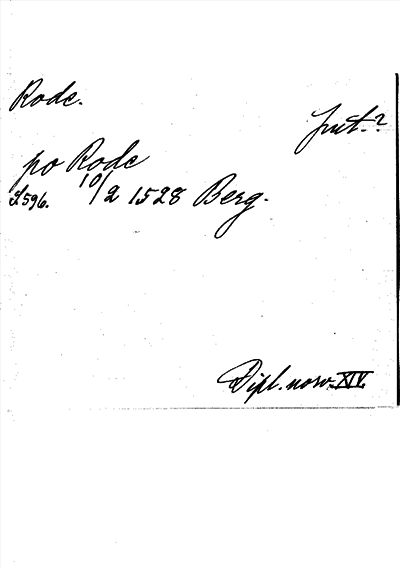 Rode.
Jut.?
po Rode
S 596. 10/2 1528 Berg.
Dipl. norv. XIV.